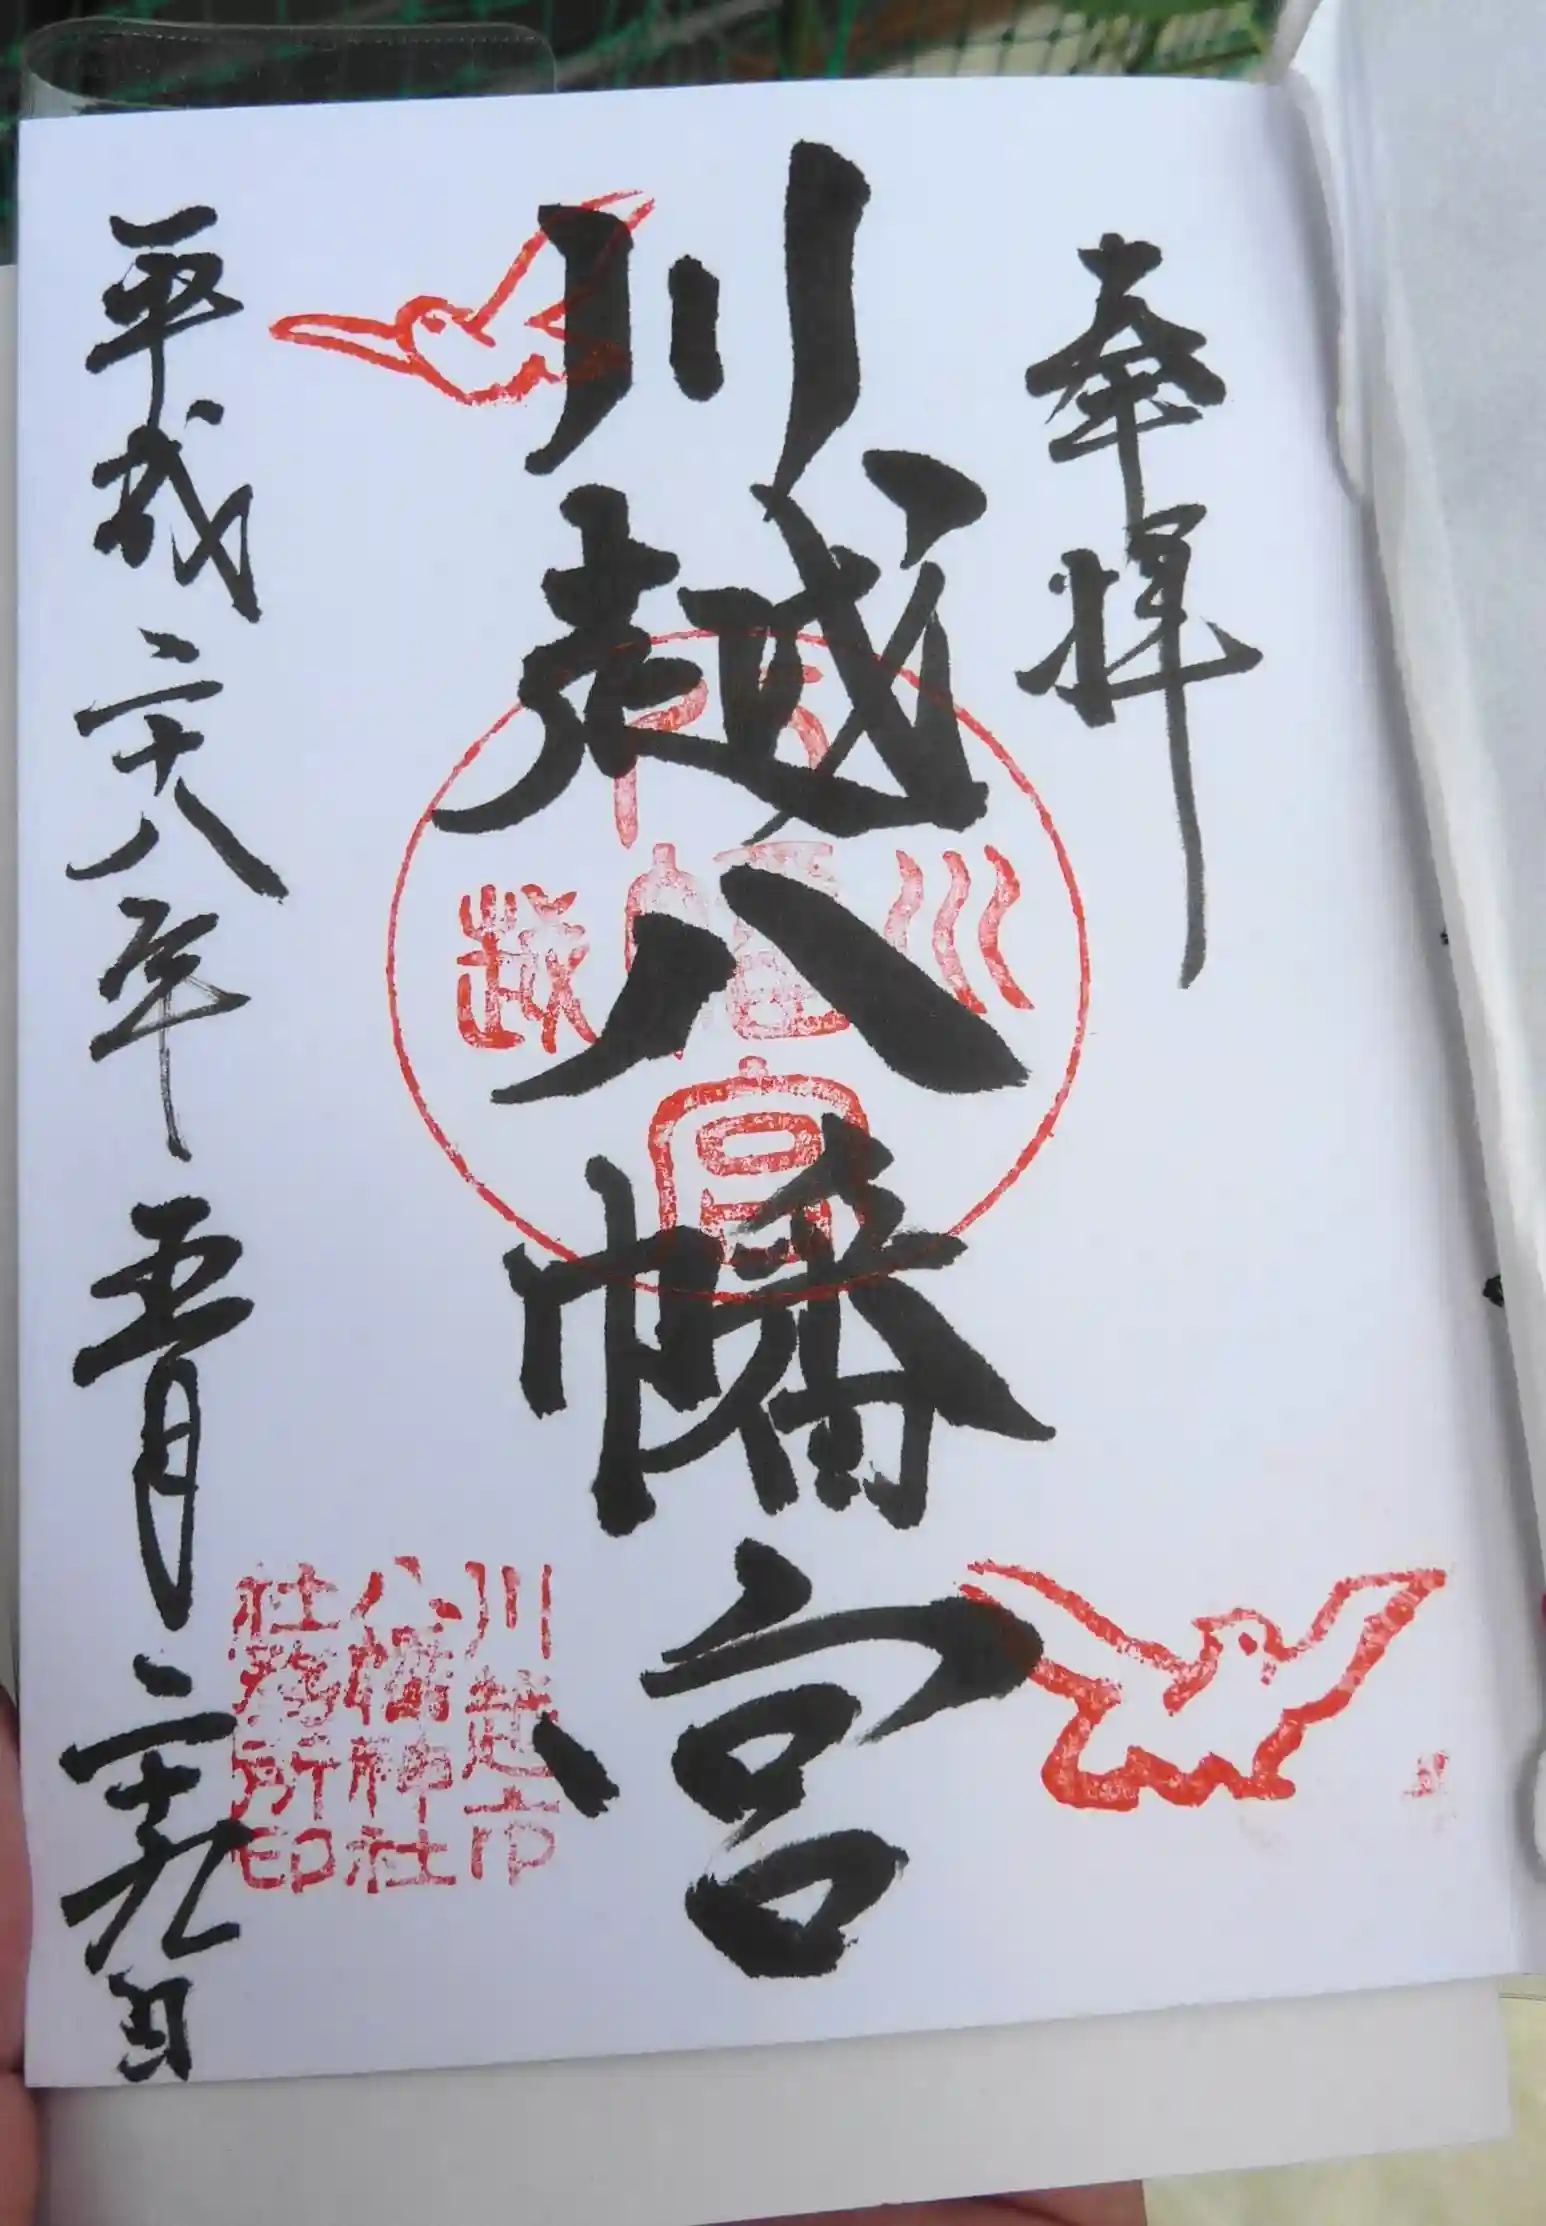 奉拝
川越八幡宮
川越
八幡宮
平成二十八年五月二十九日
川越市
八幡神社
社務所印